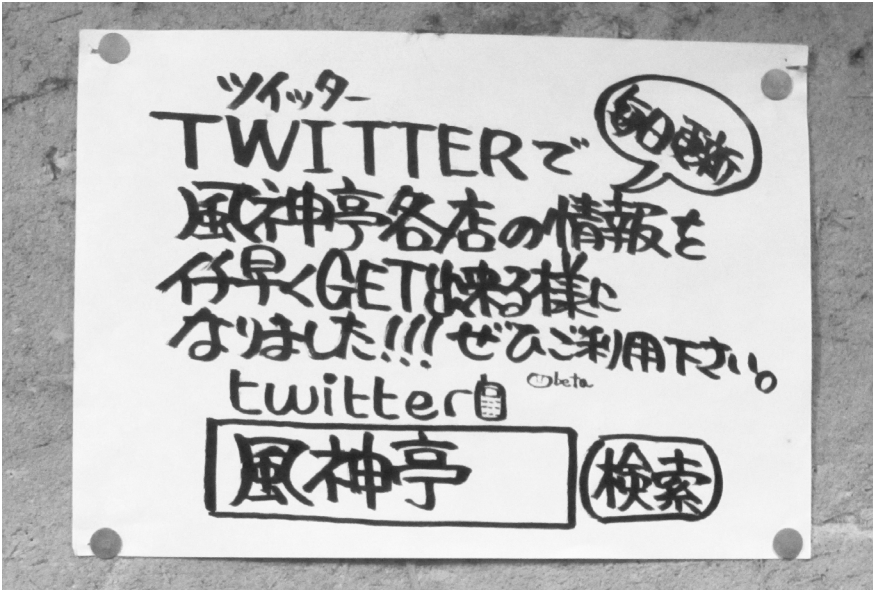 ツイッター
TWITTERで
毎日更新
風神亭各店の情報を
イチ早くGET出来る様に
なりました!!! ぜひご利用下さい。
twitter
beta
風神亭
検索